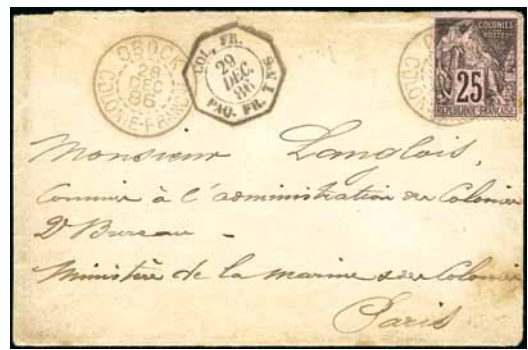 OBOCK
29
DEC
86
COLONIE-FRANCAISE
COL. FR.
29
DEC.
86
PAQ. FR.
COLONIES
POSTES
25
REPUBLIQUE FRANCAISE
Monsieur Langlois,
Commis à l'administration des Colonies
2e Bureau -
Ministère de la marine & des Colonies
Paris